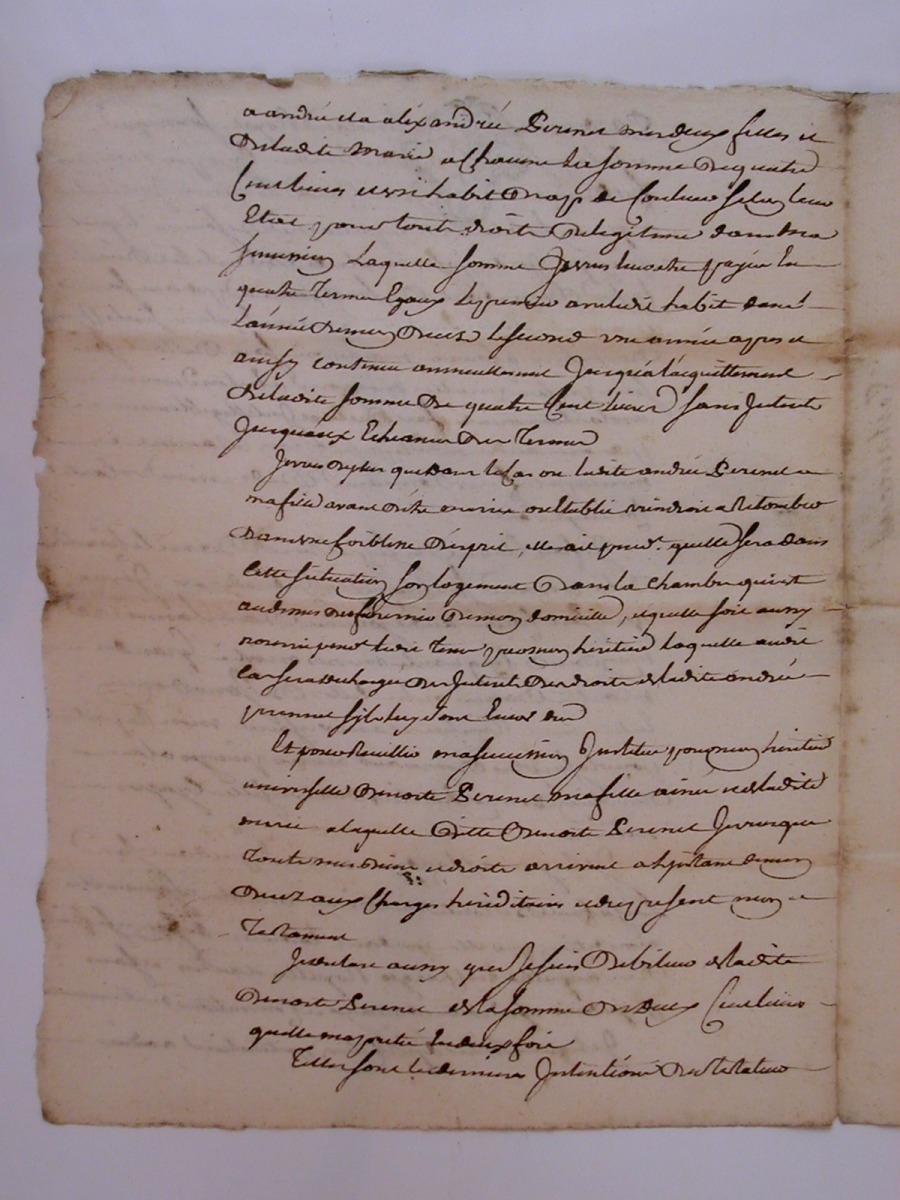 a andrée et a aléxandrée Perenet mes deux filles et
de ladite marie a chacune la somme de quatre
Cent livres et un habit drap de Couleur selon leur
Etat pour tout droits de legitime dans ma
succession Laquelle somme Je veux leur être payée En
quatre Termes Egaux le premier avec ledit habit dans
L'année de mon deces le second une année apres et
ainsy continuer annuellement Jusqu'a l'acquittement
de ladite somme de quatre Cent livres sans Interets
Jusqu'aux Echeances des Termes
Je veux de plus que dans le Cas ou ladite andrée Perenet
ma fille avant d'être mariée ou Etablie viendroit a Retomber
dans une foiblesse d'esprit, elle ait pend.t quelle sera dans
Cette situation son logement dans la chambre qui est
au dessus du fournier de mon domicille, et quelle soit aussy
nourrie pend.t ledit Tems par mon héritiere laquelle audit
Cas sera dechargée des Interets des droits de ladite andrée
Perenet s'il luy sont Encor dus
Et pour Recuillir ma succession J'institue pour mon héritiere
universelle Benoite Perenet ma fille ainée et de ladite
marie a laquelle ditte Benoite Perenet Je veux que
Tous mes biens et droits arrivent a l'instant de mon
deces aux Charges héréditaires et du present mon
Testament
Je declare aussy que Je suis debiteur de ladite
Benoite Perenet de la somme de deux Cent livres
quelle ma pretée En deux fois
Telles sont les dernieres Intentions du Testateur